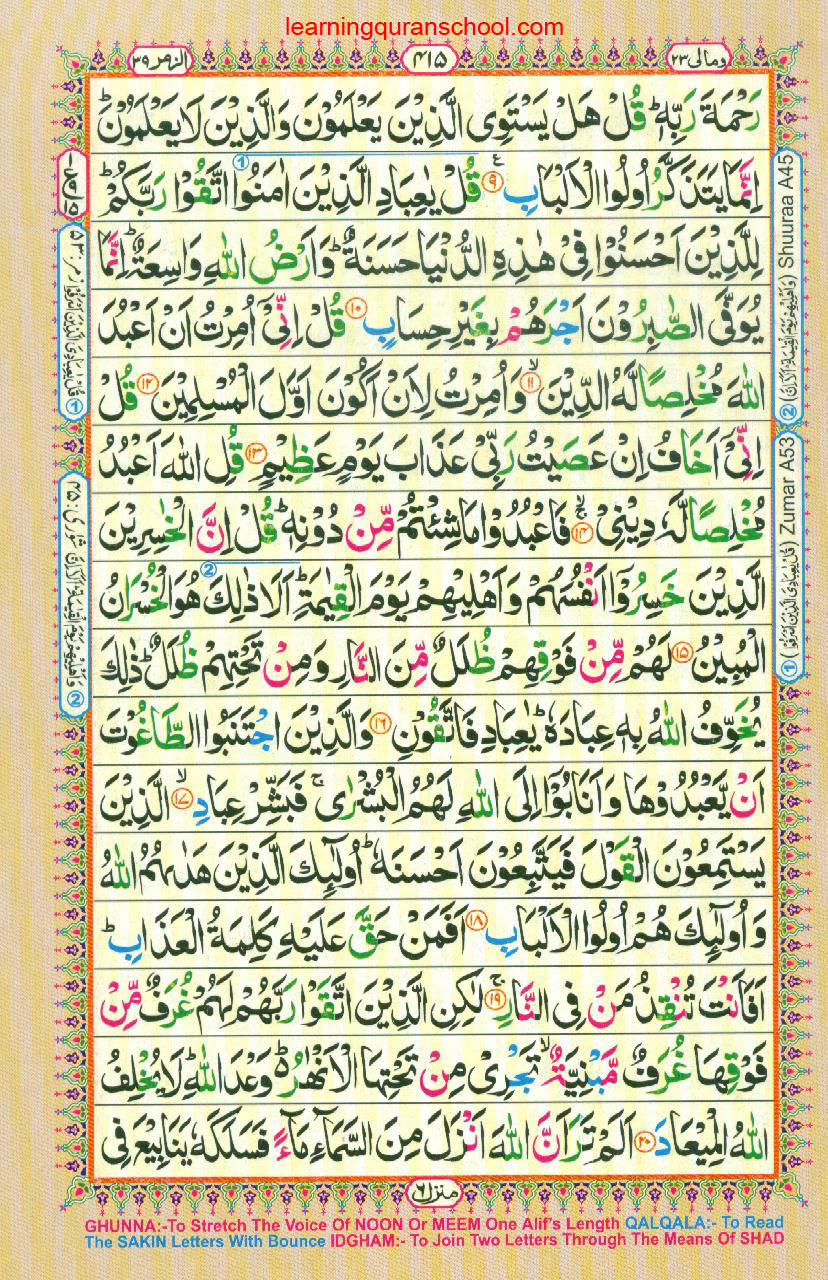 learningquranschool.com
الزمر ٣٩
٤١٥
ومالی ٢٣
رَحْمَةَ رَبِّهٖؕ قُلْ هَلْ يَسْتَوِى الَّذِيْنَ يَعْلَمُوْنَ وَالَّذِيْنَ لَا يَعْلَمُوْنَؕ
اِنَّمَا يَتَذَكَّرُ اُولُوا الْاَلْبَابِ ٩ قُلْ يٰعِبَادِ الَّذِيْنَ اٰمَنُوا اتَّقُوْا رَبَّكُمْؕ
لِلَّذِيْنَ اَحْسَنُوْا فِىْ هٰذِهِ الدُّنْيَا حَسَنَةٌؕ وَاَرْضُ اللّٰهِ وَاسِعَةٌؕ اِنَّمَا
يُوَفَّى الصّٰبِرُوْنَ اَجْرَهُمْ بِغَيْرِ حِسَابٍ ١٠ قُلْ اِنِّىْۤ اُمِرْتُ اَنْ اَعْبُدَ
اللّٰهَ مُخْلِصًا لَّهُ الدِّيْنَۙ ١١ وَاُمِرْتُ لِاَنْ اَكُوْنَ اَوَّلَ الْمُسْلِمِيْنَ ١٢ قُلْ
اِنِّىْۤ اَخَافُ اِنْ عَصَيْتُ رَبِّىْ عَذَابَ يَوْمٍ عَظِيْمٍ ١٣ قُلِ اللّٰهَ اَعْبُدُ
مُخْلِصًا لَّهٗ دِيْنِىْۙ ١٤ فَاعْبُدُوْا مَا شِئْتُمْ مِّنْ دُوْنِهٖؕ قُلْ اِنَّ الْخٰسِرِيْنَ
الَّذِيْنَ خَسِرُوْۤا اَنْفُسَهُمْ وَاَهْلِيْهِمْ يَوْمَ الْقِيٰمَةِؕ اَلَا ذٰلِكَ هُوَ الْخُسْرَانُ
الْمُبِيْنُ ١٥ لَهُمْ مِّنْ فَوْقِهِمْ ظُلَلٌ مِّنَ النَّارِ وَمِنْ تَحْتِهِمْ ظُلَلٌؕ ذٰلِكَ
يُخَوِّفُ اللّٰهُ بِهٖ عِبَادَهٗؕ يٰعِبَادِ فَاتَّقُوْنِ ١٦ وَالَّذِيْنَ اجْتَنَبُوا الطَّاغُوْتَ
اَنْ يَّعْبُدُوْهَا وَاَنَابُوْۤا اِلَى اللّٰهِ لَهُمُ الْبُشْرٰىۚ فَبَشِّرْ عِبَادِۙ ١٧ الَّذِيْنَ
يَسْتَمِعُوْنَ الْقَوْلَ فَيَتَّبِعُوْنَ اَحْسَنَهٗؕ اُولٰٓئِكَ الَّذِيْنَ هَدٰٮهُمُ اللّٰهُ
وَاُولٰٓئِكَ هُمْ اُولُوا الْاَلْبَابِ ١٨ اَفَمَنْ حَقَّ عَلَيْهِ كَلِمَةُ الْعَذَابِؕ
اَفَاَنْتَ تُنْقِذُ مَنْ فِى النَّارِۚ ١٩ لٰكِنِ الَّذِيْنَ اتَّقَوْا رَبَّهُمْ لَهُمْ غُرَفٌ مِّنْ
فَوْقِهَا غُرَفٌ مَّبْنِيَّةٌۙ تَجْرِىْ مِنْ تَحْتِهَا الْاَنْهٰرُؕ وَعْدَ اللّٰهِؕ لَا يُخْلِفُ
اللّٰهُ الْمِيْعَادَ ٢٠ اَلَمْ تَرَ اَنَّ اللّٰهَ اَنْزَلَ مِنَ السَّمَآءِ مَآءً فَسَلَكَهٗ يَنَابِيْعَ فِى
② Shuuraa A45
① Zumar A53
منزل ٦
GHUNNA:-To Stretch The Voice Of NOON Or MEEM One Alif's Length QALQALA:- To Read
The SAKIN Letters With Bounce IDGHAM:- To Join Two Letters Through The Means Of SHAD